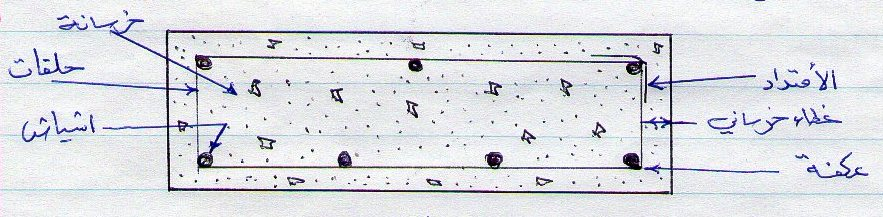 خرسانة
حلقات
اشياش
الأمتداد
غطاء خرساني
عكفة